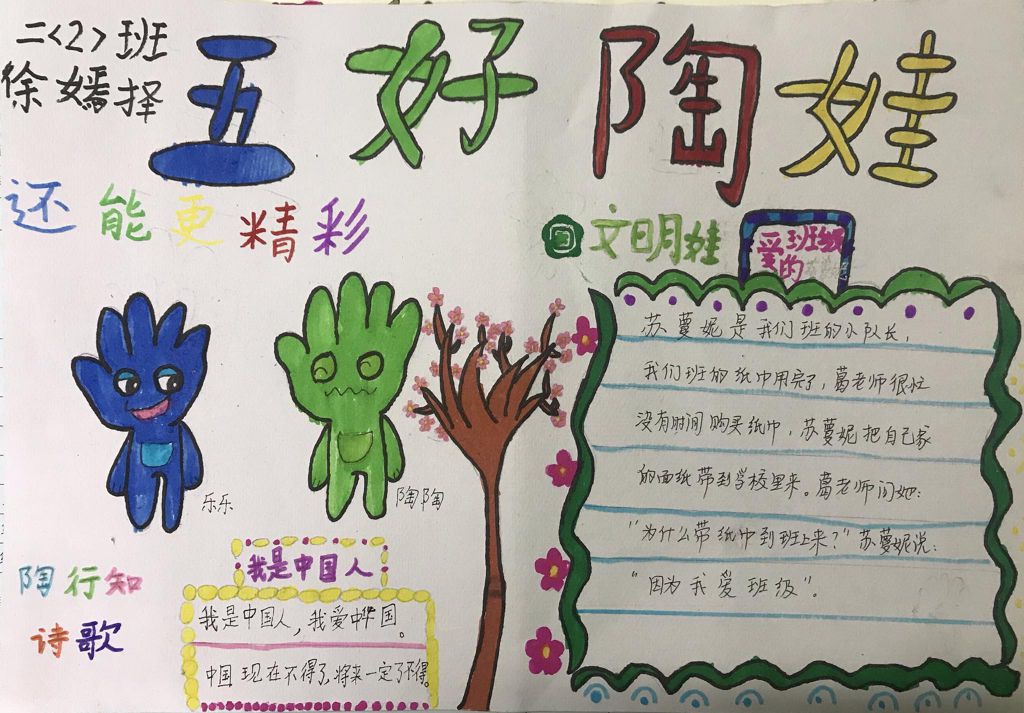 二<2>班
徐嫣择
五好陶娃
还能更精彩
文明娃
爱班级的苏蔓妮
苏蔓妮是我们班的小队长,
我们班的纸巾用完了,葛老师很忙
没有时间购买纸巾,苏蔓妮把自己家
的面纸带到学校里来。葛老师问她:
"为什么带纸巾到班上来?"苏蔓妮说:
"因为我爱班级"。
乐乐
陶陶
陶行知
诗歌
我是中国人
我是中国人,我爱中华国。
中国现在不得了,将来一定了不得。